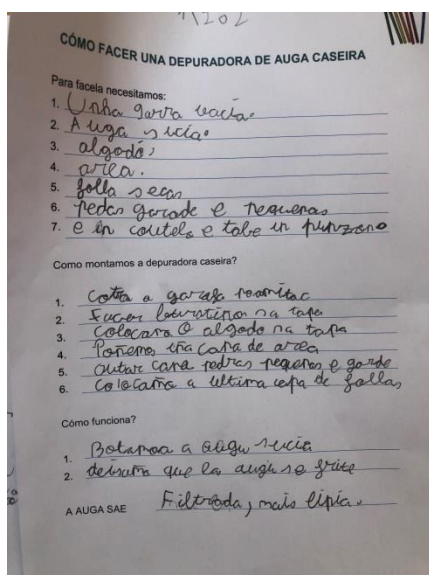 CÓMO FACER UNA DEPURADORA DE AUGA CASEIRA
Para facela necesitamos:
1. Unha garra vacía.
2. Auga sucia.
3. algodó,
4. area.
5. folla secas
6. pedas garade e pequenas
7. e un coutelo e tabe un punzono
Como montamos a depuradora caseira?
1. a garafa
2. Facer na tapa
3. Colocara o algodo na tapa
4. Poñemos uña capa de area
5. outar capa pedras pequenas e garde
6. a ultima capa de follas
Cómo funciona?
1. Botamoa a augu sucia
2. que la augu se
A AUGA SAE Filtrada, mais lipia.